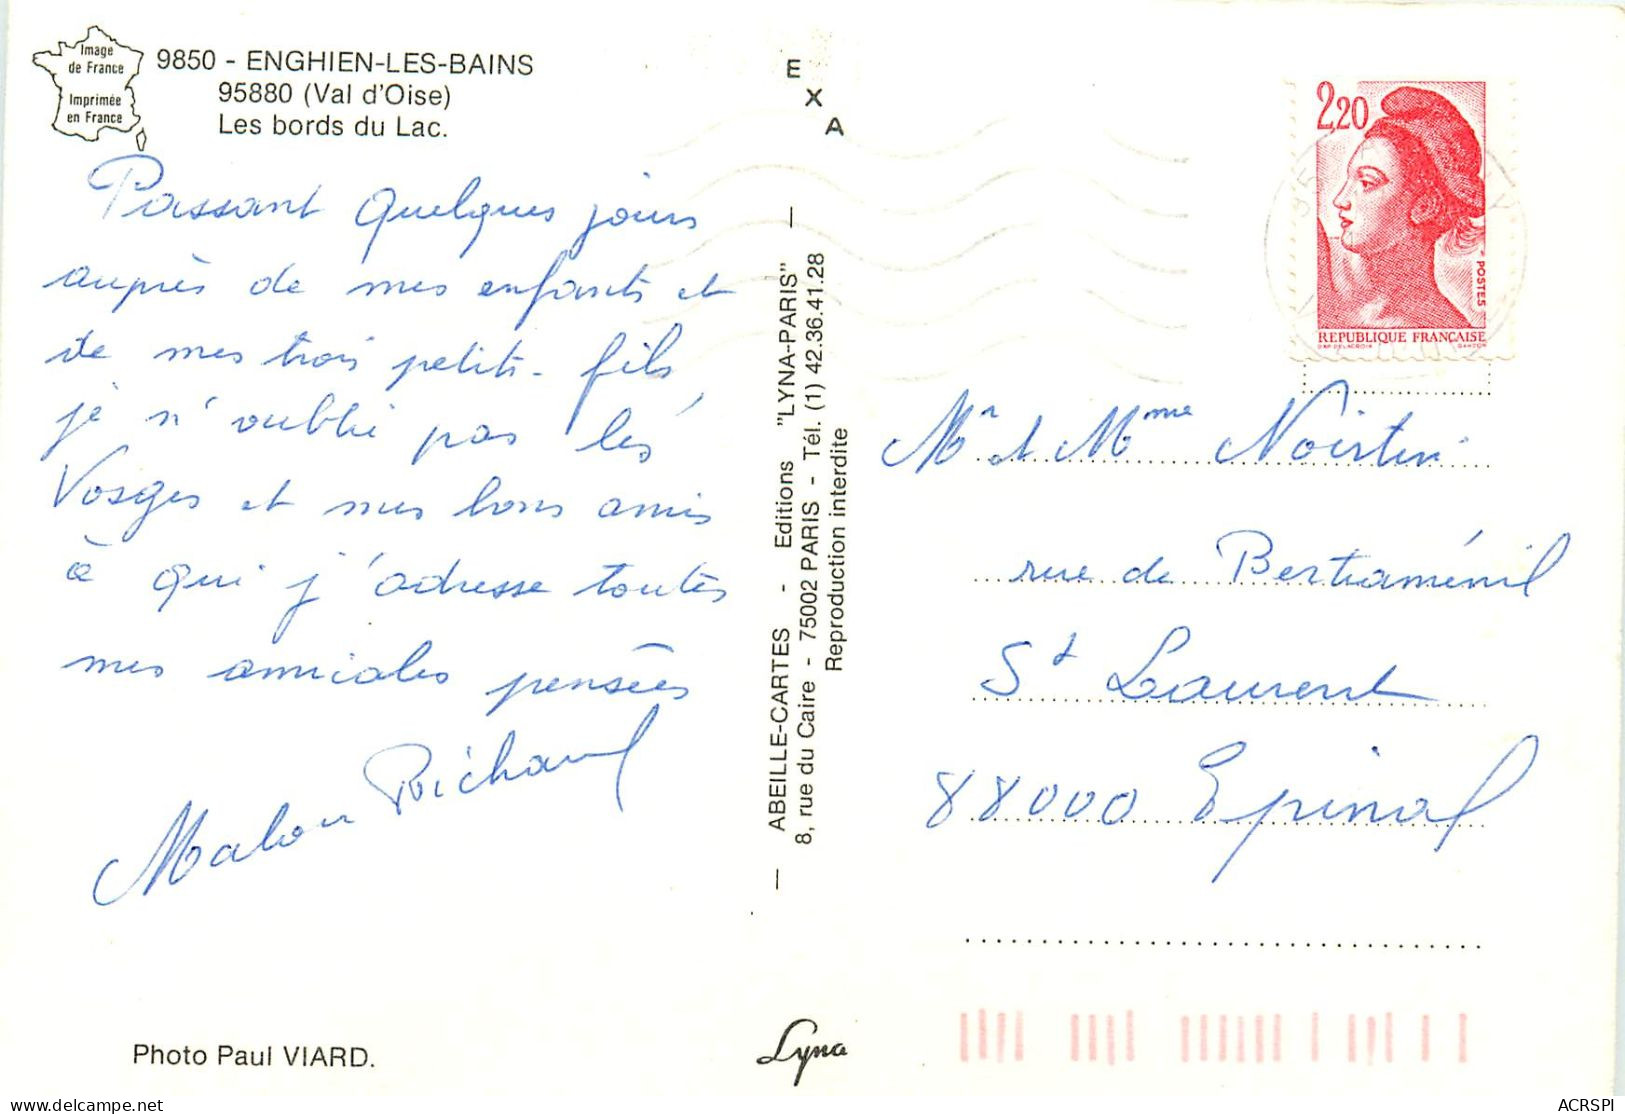 Image
de France
Imprimée
en France
9850 - ENGHIEN-LES-BAINS
95880 (Val d'Oise)
Les bords du Lac.
Passant quelques jours
auprès de mes enfants et
de mes trois petits-fils,
je n'oublie pas les
Vosges et mes bons amis
à qui j'adresse toutes
mes amicales pensées
Malou Richard
Photo Paul VIARD.
EXA
ABEILLE-CARTES - Editions "LYNA-PARIS"
8, rue du Caire - 75002 PARIS - Tél. (1) 42.36.41.28
Reproduction interdite
Lyna
2,20
POSTES
REPUBLIQUE FRANÇAISE
D'AP. DELACROIX GANDON
95
Mr et Mme Noirtin
rue de Bertraménil
St Laurent
88000 Epinal
delcampe.net
ACRSPI